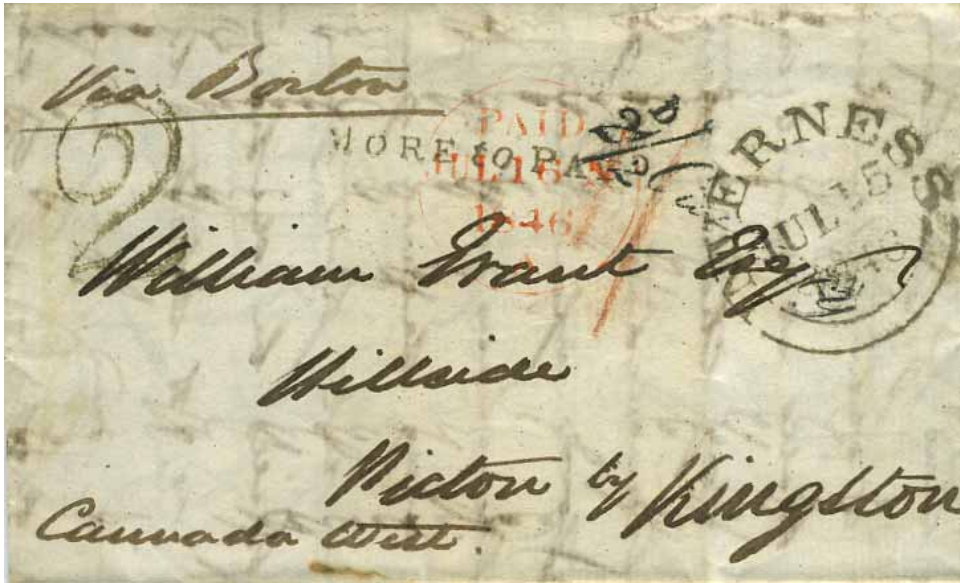 Via Boston
2
MORE to PAY
PAID
JUL 16
1846
ERNESS
JUL 15
William Grant Esq
Hillside
Picton by Kingston
Cannada West.